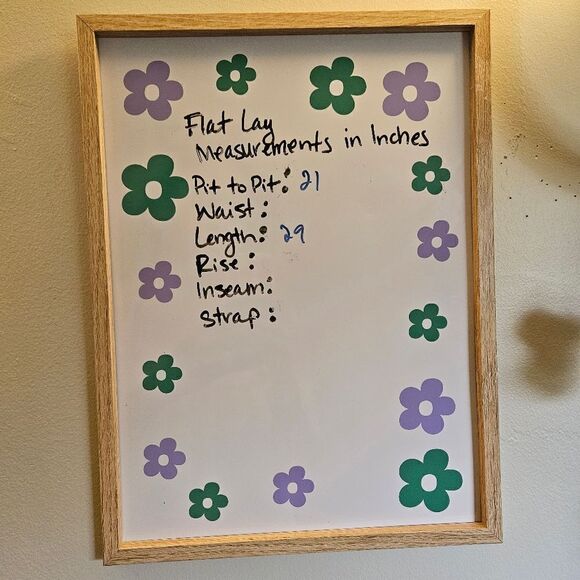 Flat Lay
Measurements in Inches
Pit to Pit: 21
Waist:
Length: 29
Rise:
Inseam:
Strap: